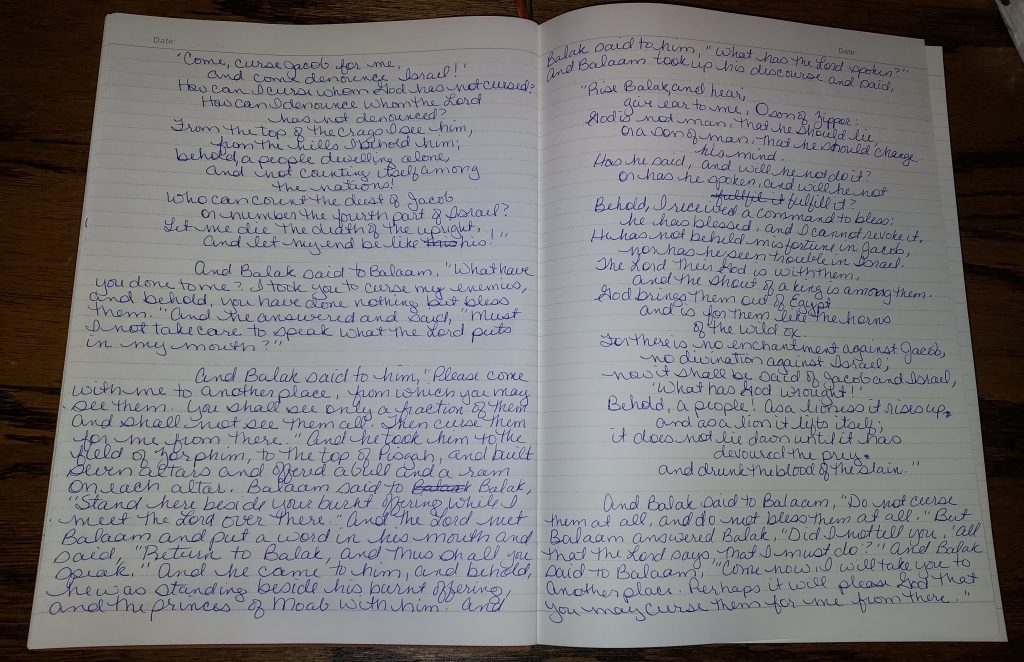 Date:
'Come, curse Jacob for me,
and come denounce Israel!'
How can I curse whom God has not cursed?
How can I denounce whom the Lord
has not denounced?
From the top of the crags I see him,
from the hills I behold him;
behold a people dwelling alone,
and not counting itself among
the nations!
Who can count the dust of Jacob
or number the fourth part of Israel?
Let me die the death of the upright,
And let my end be like this his!"
And Balak said to Balaam, "What have
you done to me? I took you to curse my enemies,
and behold, you have done nothing but bless
them." And he answered and said, "Must
I not take care to speak what the Lord puts
in my mouth?"
And Balak said to him, "Please come
with me to another place, from which you may
see them. You shall see only a fraction of them
and shall not see them all. Then curse them
for me from there." And he took him to the
field of Zophim, to the top of Pisgah, and built
seven altars and offered a bull and a ram
on each altar. Balaam said to Balaak Balak,
"Stand here beside your burnt offering, while I
meet the Lord over there." And the Lord met
Balaam and put a word in his mouth and
said, "Return to Balak, and thus shall you
speak." And he came to him, and behold,
he was standing beside his burnt offering,
and the princes of Moab with him. And
Date:
Balak said to him, "What has the Lord spoken?"
And Balaam took up his discourse and said,
"Rise Balak and hear;
give ear to me, O son of Zippor:
God is not man, that he should lie,
or a son of man, that he should change
his mind.
Has he said, and will he not do it?
or has he spoken, and will he not
fullfil it fulfill it?
Behold, I received a command to bless:
he has blessed, and I cannot revoke it.
He has not beheld misfortune in Jacob,
nor has he seen trouble in Israel.
The Lord their God is with them,
and the shout of a king is among them.
God brings them out of Egypt
and is for them like the horns
of the wild ox.
For there is no enchantment against Jacob,
no divination against Israel;
now it shall be said of Jacob and Israel,
'What has God wrought!'
Behold, a people! As a lioness it rises up,
and as a lion it lifts itself;
it does not lie down until it has
devoured the prey
and drunk the blood of the slain."
And Balak said to Balaam, "Do not curse
them at all, and do not bless them at all." But
Balaam answered Balak, "Did I not tell you, 'all
that the Lord says, that I must do'?" And Balak
said to Balaam, "Come now, I will take you to
another place. Perhaps it will please God that
you may curse them for me from there."